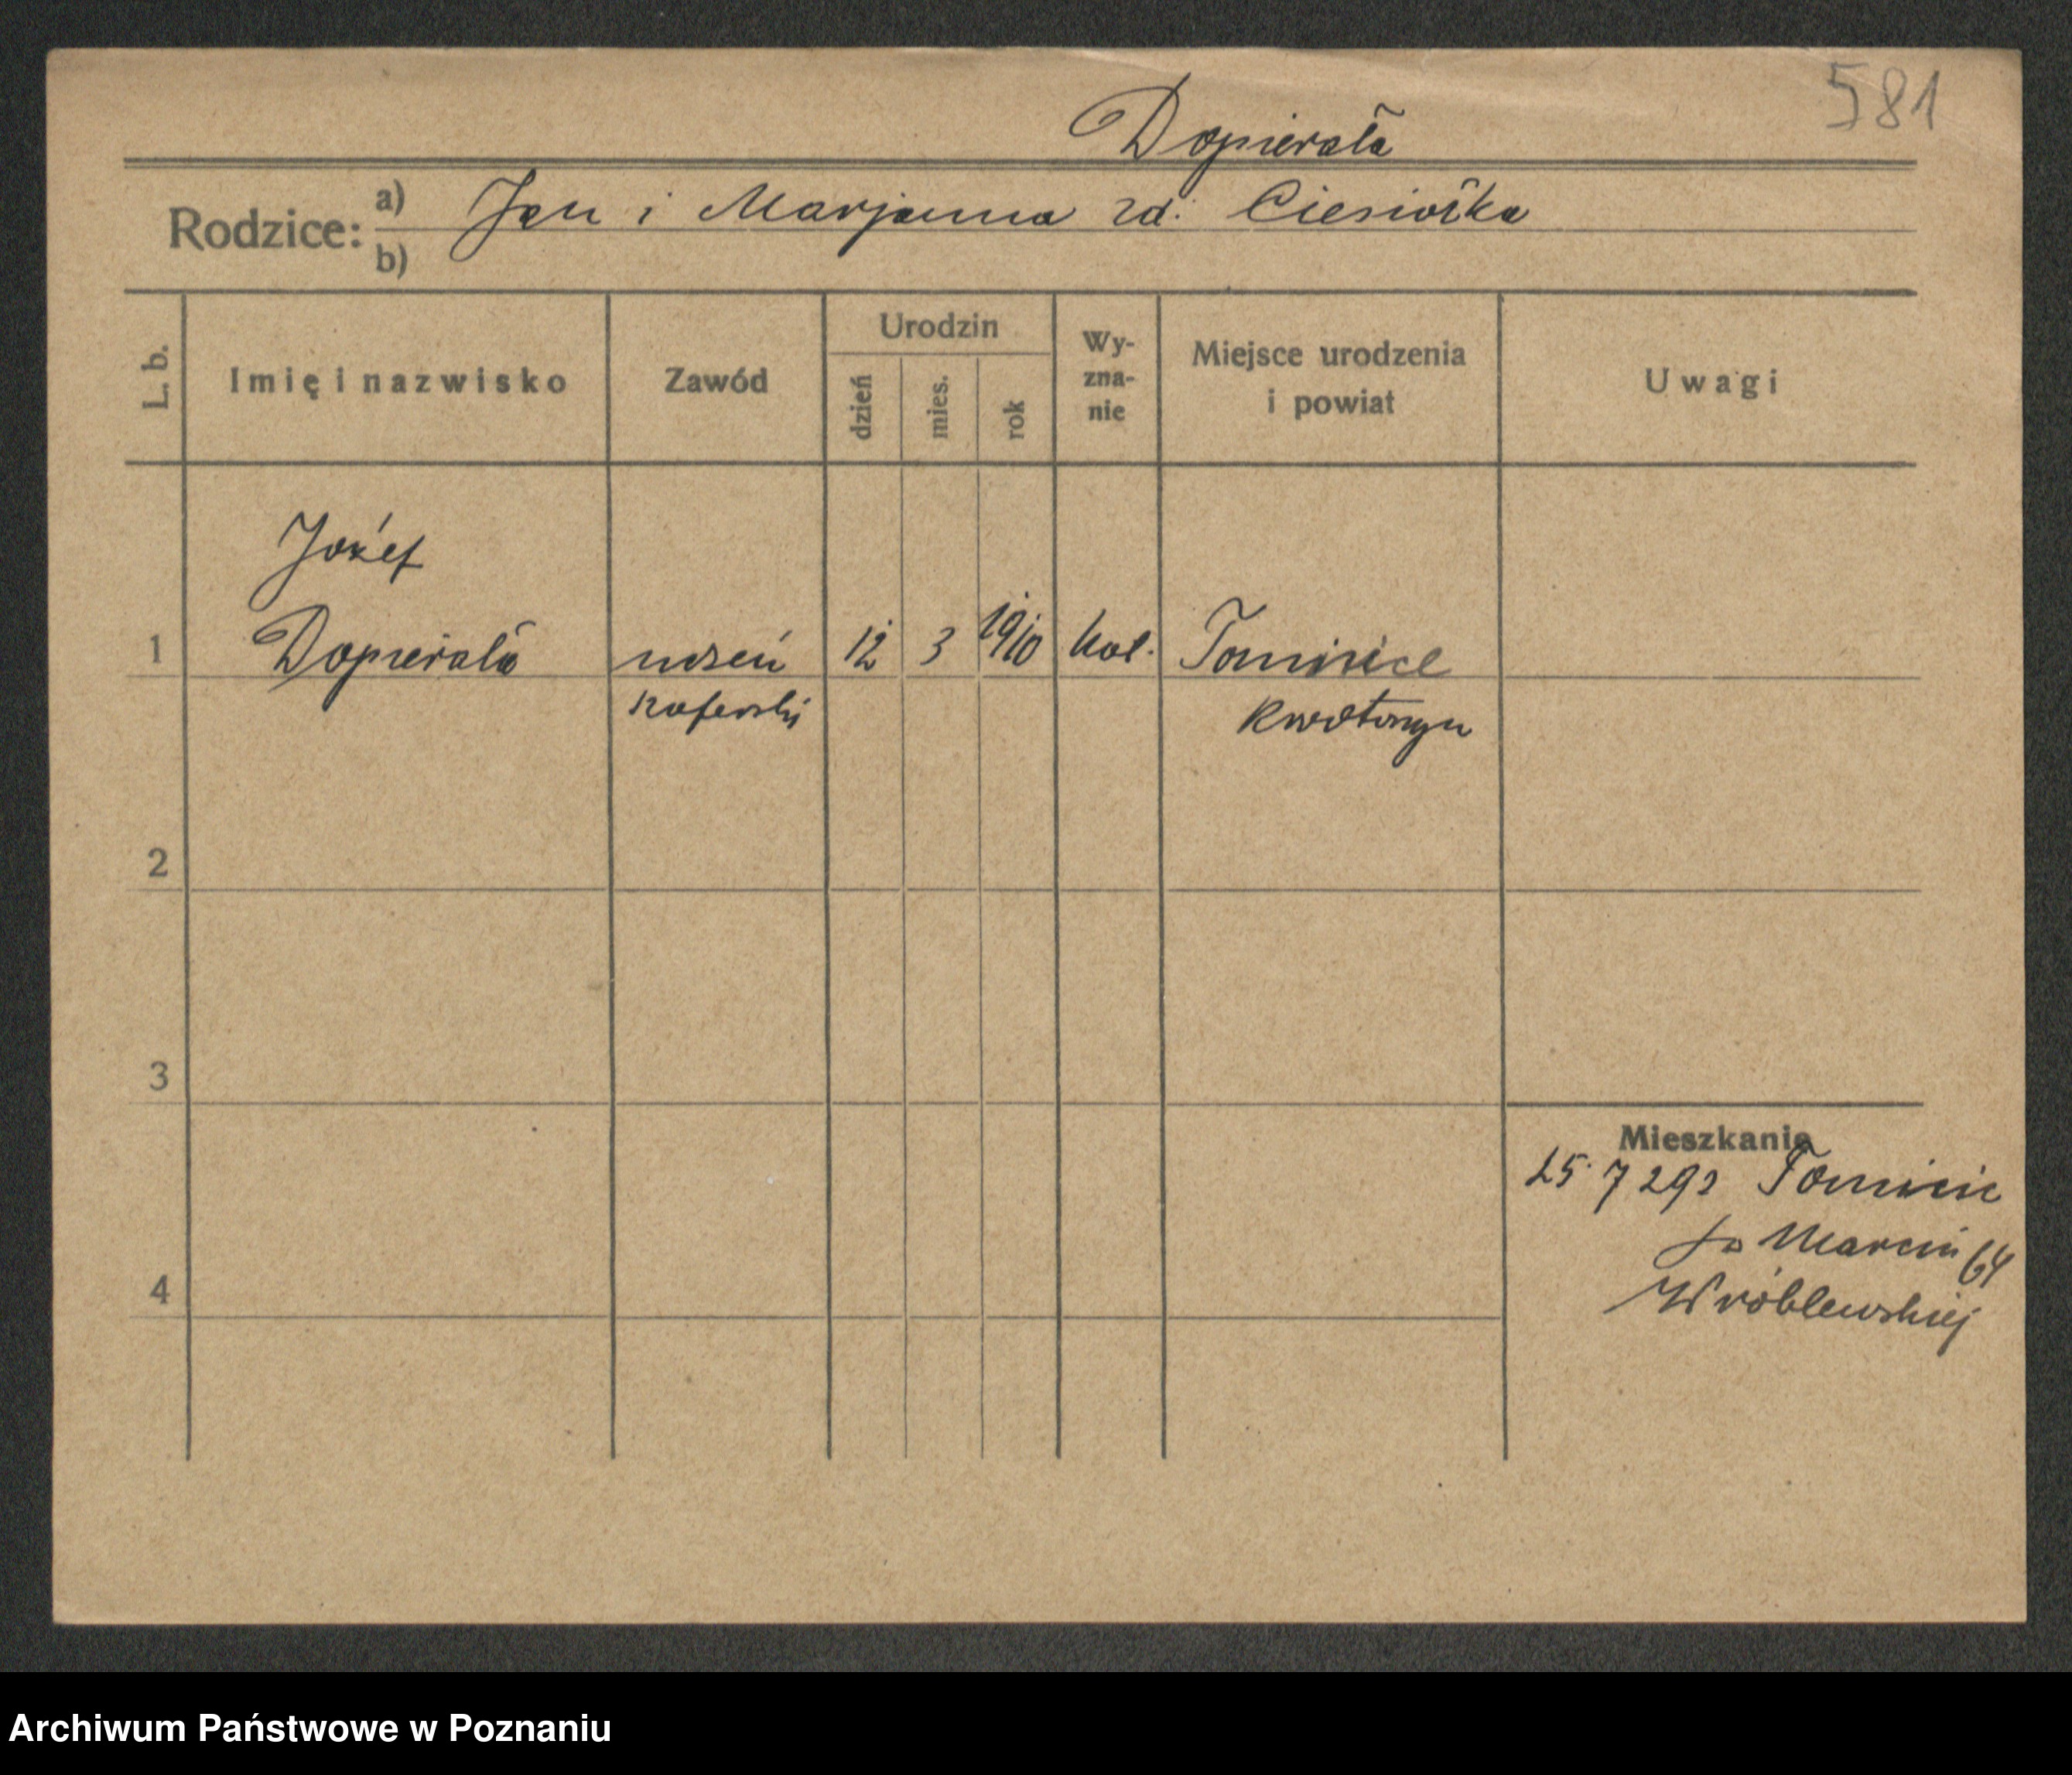 581
Dopierała
Rodzice: a) Jan i Marjanna zd. Ciesiołka
b)
L. b. Imię i nazwisko Zawód Urodzin dzień mies. rok Wy-zna-nie Miejsce urodzenia i powiat Uwagi
Józef
1 Dopierała uczeń 12 3 1910 kat. Tomnice
Krotoszyn
2
3
Mieszkanie
25 7 29 Tomnice
św Marcin 64
4
Wróblewskiej
Archiwum Państwowe w Poznaniu